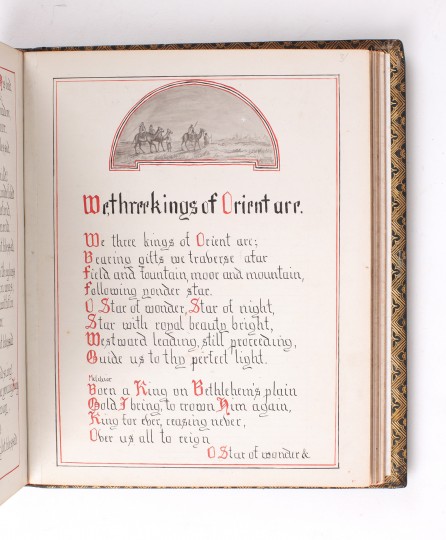 We three kings of Orient are.
We three kings of Orient are;
Bearing gifts we traverse afar
Field and fountain, moor and mountain,
Following yonder star.
O Star of wonder, Star of night,
Star with royal beauty bright,
Westward leading, still proceeding,
Guide us to thy perfect light.
Melchior
Born a King on Bethlehem's plain
Gold I bring, to crown Him again,
King for ever, ceasing never,
Over us all to reign
O Star of wonder &